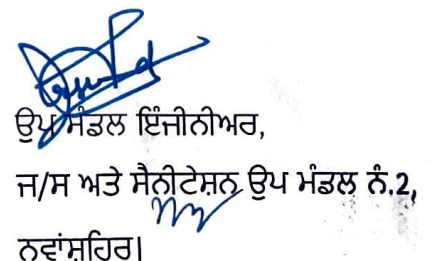 ਉਪ ਮੰਡਲ ਇੰਜੀਨੀਅਰ,
ਜ/ਸ ਅਤੇ ਸੈਨੀਟੇਸ਼ਨ ਉਪ ਮੰਡਲ ਨੰ.2,
ਨਵਾਂਸ਼ਹਿਰ।